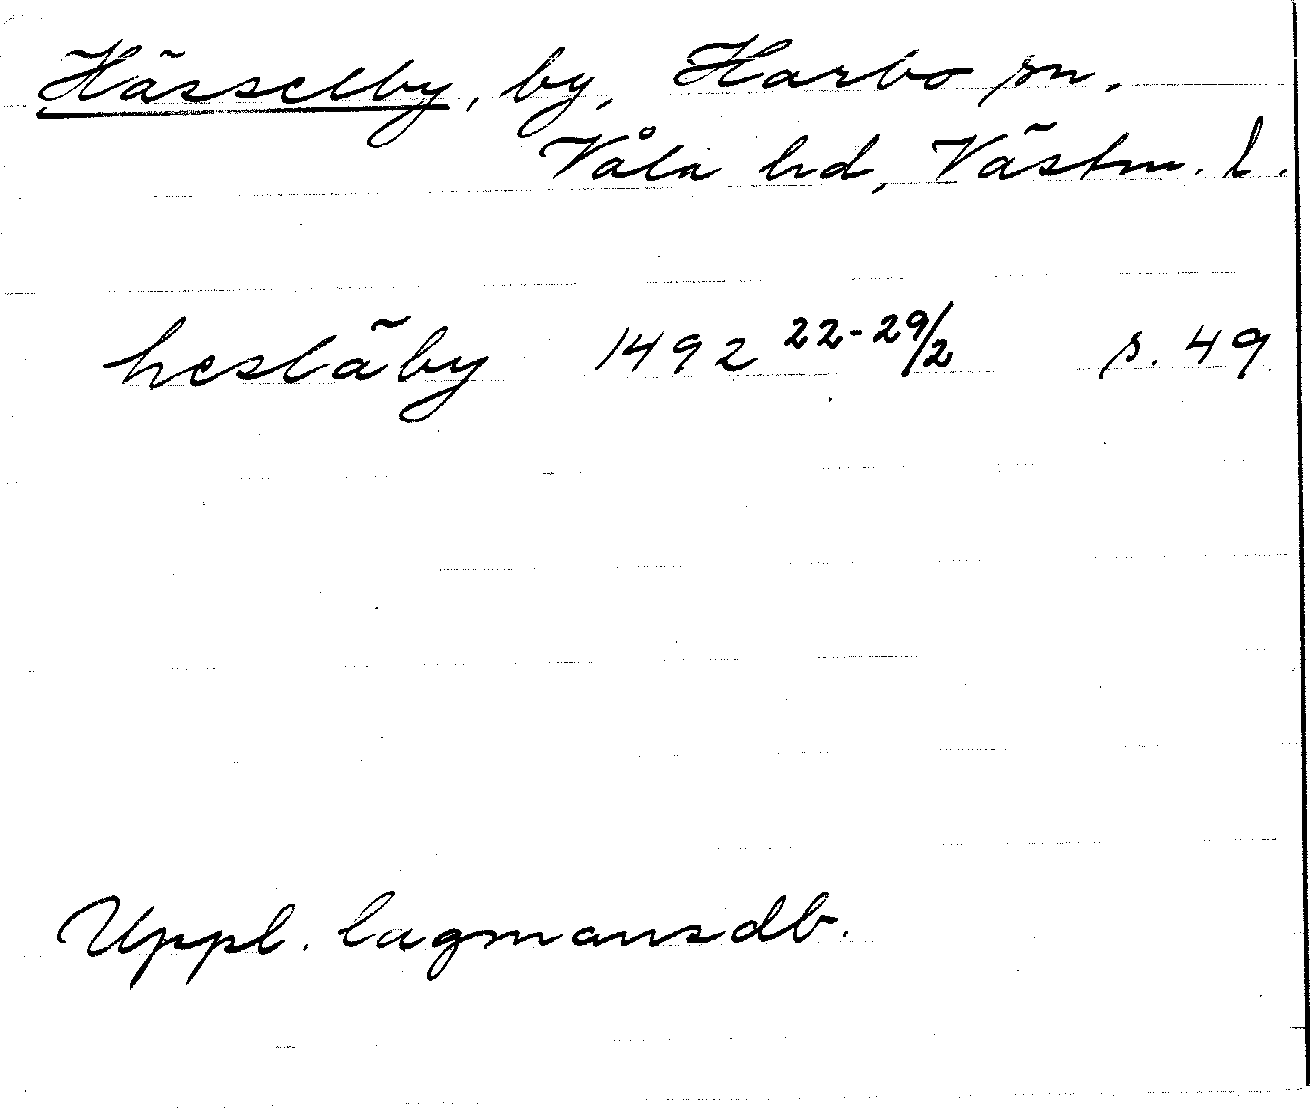 Hässelby, by, Harbo sn.
Våla hd, Västm. l.
heslãby 1492 22-29/2 s. 49
Uppl. lagmansdb.